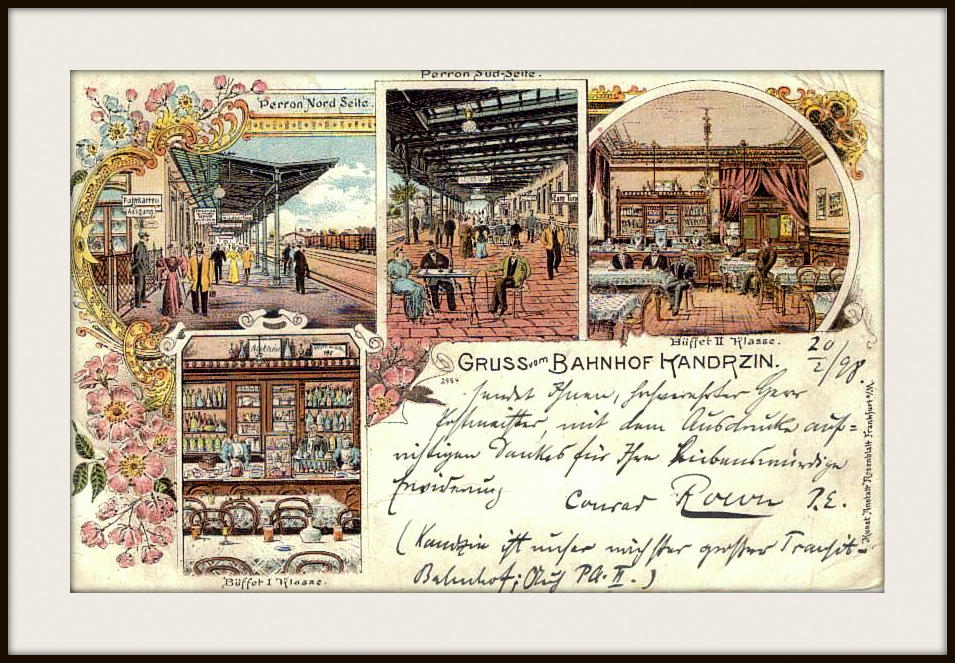 Perron Süd-Seite.
Perron Nord Seite.
Fahrkarten
Ausgang
Büffet II Klasse.
GRUSS vom BAHNHOF KANDRZIN.
20/2/98.
2984
sendet Ihnen, hochverehrter Herr
Postmeister, mit dem Ausdrucke auf=
richtigen Dankes für Ihre Liebenswürdige
Erwiderung
Conrad P.E.
(Kandrzin ist unser nächster großer Transit-
Bahnhof; II.)
Büffet I Klasse.
Kunst Anstalt Rosenblatt Frankfurt a/M.